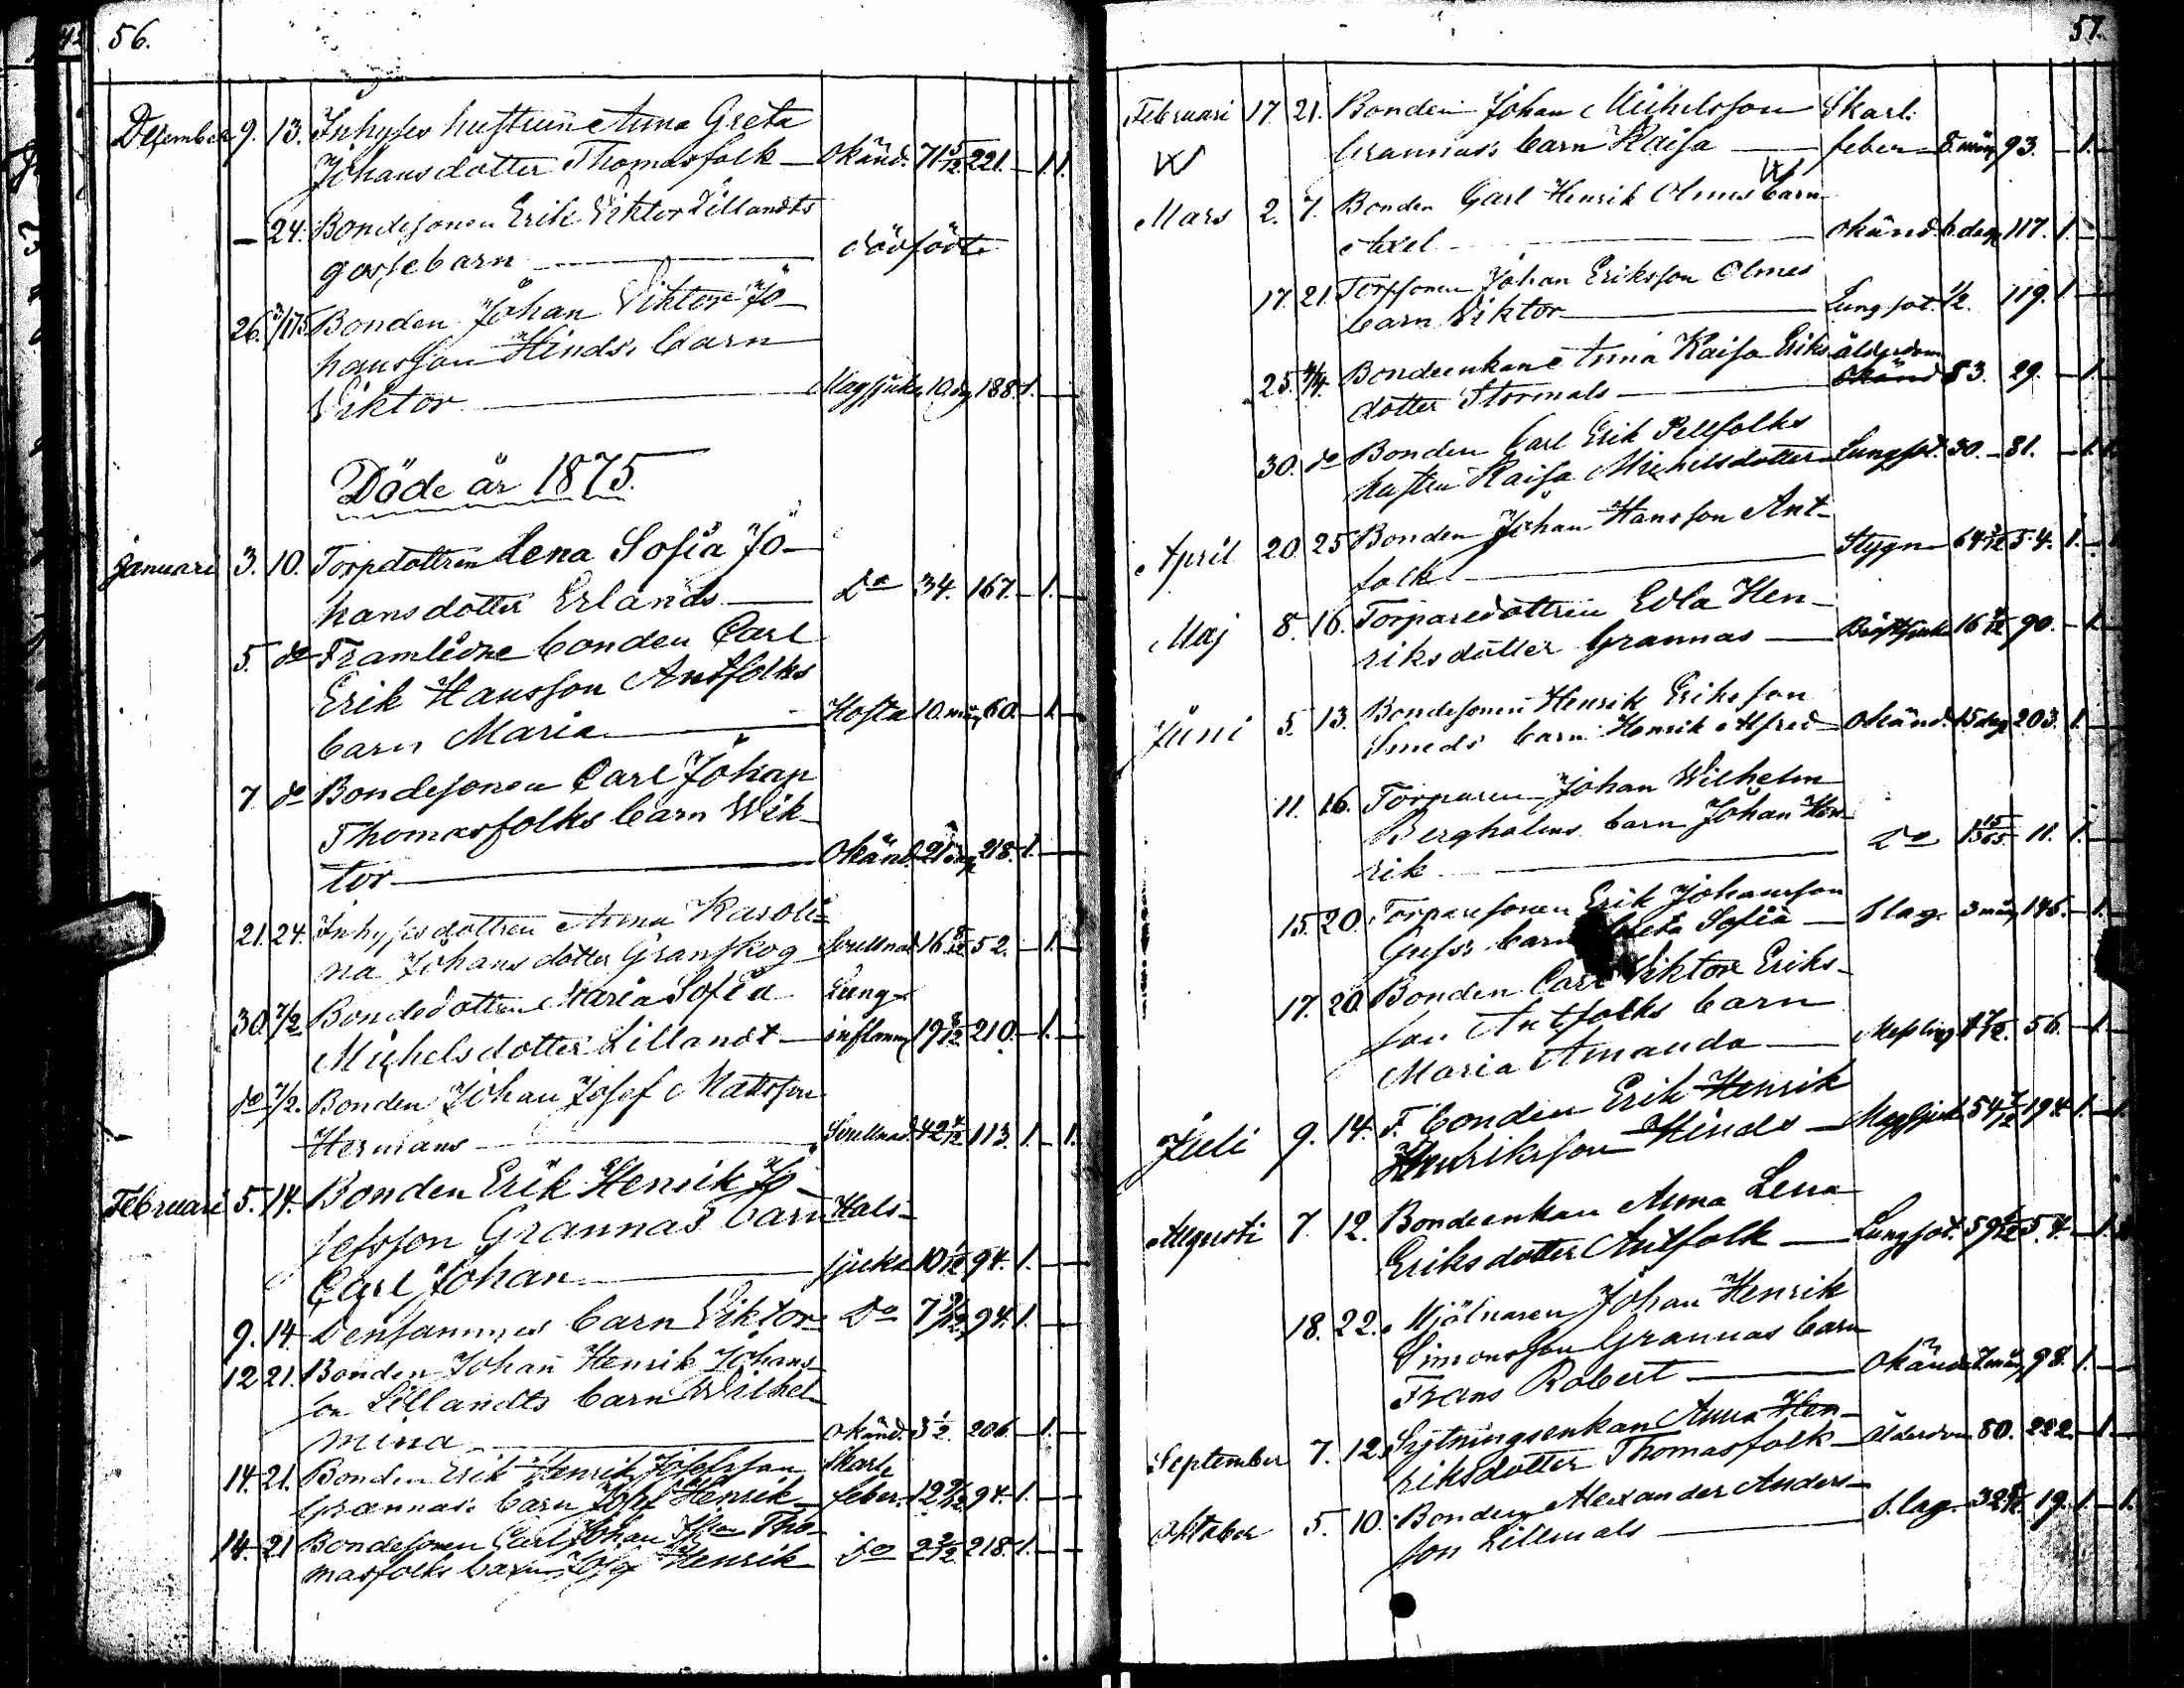 56.
Desember 9. 13. Inhyses hustrun Anna Greta
Johansdotter Thomasfolk — Okänd. 71 5/12 221. — 1. 1.
— 24. Bondesonen Erik Viktor Lillandts
gossebarn — dödfödt
26. 3/1 75 Bonden Johan Viktor Jo-
hansson Hinds. barn
Viktor — Magsjuka 10. dg 188. 1. —
Döde år 1875.
Januari 3. 10. Torpdottren Lena Sofia Jo-
hansdotter Erlands — Do 34. 167. — 1. —
5. do Framlidne bonden Carl
Erik Hansson Antfolks
barn Maria — Hosta 10. mån 60. — 1. —
7. do Bondesonen Carl Johan
Thomasfolks barn Wik-
tor — Okänd. 21 218. 1. —
21. 24. Inhysesdottren Anna Karoli-
na Johansdotter Granskog — Svullnad 16 52. — 1. —
30. 7/2 Bondedottren Maria Sofia Lung-
Michelsdotter Lillandt — inflamm 19 8/12 210. — 1. —
do 7/2. Bonden Johan Josef Mattsson
Hermans — Svullnad 42 113. 1. — 1.
Februari 5. 14. Bonden Erik Henrik Jo-
sefsson Grannas barn Hals-
Carl Johan — sjuka 10 1/12 94. 1. —
9. 14 Densammes barn Viktor Do 7 94. 1. —
12 21. Bonden Johan Henrik Johans-
son Lillandts barn Wilhel-
mina — okänd. 3 1/2. 206. — 1. —
14. 21. Bonden Erik Henrik Josefsson Skarl.
Grannas. barn Josef Henrik — feber. 12 94. 1. —
14. 21 Bondesonen Carl Johan Tho-
masfolks barn Josef Henrik do 2 218. 1. —
57.
Februari 17. 21. Bonden Johan Michelsson Skarl.
W Grannas's barn Kaisa — feber — 8. mån 93. — 1. —
W
Mars 2. 7. Bonden Carl Henrik Olmes barn
Axel — okänd. 6. dag 117. 1. —
17. 21. Torpsonen Johan Eriksson Olmes
barn Viktor — Lungsot. 1/2. 119. 1. —
25. 4/4. Bondeenkan Anna Kaisa Eriks- ålderdom
dotter Stormåls — okänd 83. 29. — 1. —
30. do Bonden Carl Erik Pellfolks
hustru Kaisa Michelsdotter — Lungsot. 30. — 81. — 1. 1.
April 20. 25 Bonden Johan Hansson Ant-
folk — Stygn — 64 54. 1. —
Maj 8. 16. Torparedottren Edla Hen-
riksdotter Grannas — Bröstsjuka 16 90. — 1. —
Juni 5. 13. Bondesonen Henrik Eriksson
Smeds barn Henrik Alfred — Okänd. 15 dag 203. 1. —
11. 16. Torparen Johan Wilhelm
Bergholms barn Johan Hen-
rik — Do 1 15/365. 11. 1. —
15. 20. Torparesonen Erik Johansson
Guss's barn Greta Sofia — Slag. 3 mån 146. — 1. —
17. 20. Bonden Carl Viktor Eriks-
son Antfolks barn
Maria Amanda — Messling 56. — 1. —
Juli 9. 14. F. bonden Erik Henrik
Henriksson Hinds — Magsjuk 54 194. 1. — 1.
Augusti 7. 12. Bondeenkan Anna Lena
Eriksdotter Antfolk — Lungsot. 59 54. — 1.
18. 22. Mjölnaren Johan Henrik
Simonsson Grannas barn
Frans Robert — Okänd 7 mån 98. 1. —
September 7. 12. Sytningsenkan Anna Hen-
riksdotter Thomasfolk — Ålderdom 80. 222. — 1. —
Oktober 5. 10. Bonden Alexander Anders-
son Lillmåls — Slag. 32 19. 1. — 1.